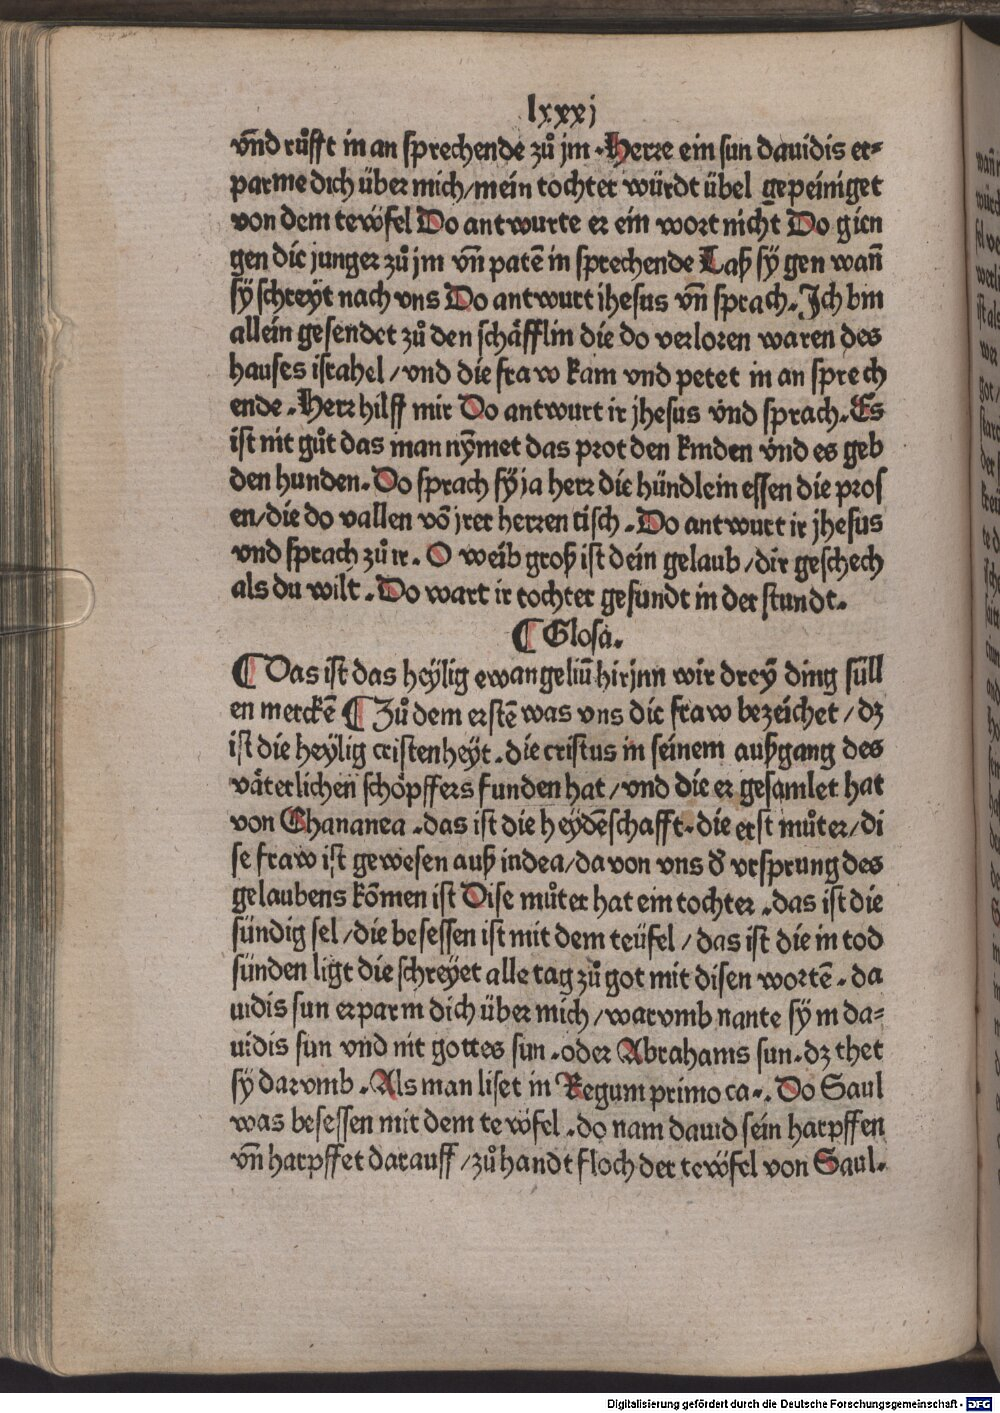 lxxxj
vñd růfft in an sprechende zů jm ·Herre ein sun dauidis er⸗
parme dich über mich/mein tochter würdt übel gepeiniget
von dem tewfel Do antwurte er ein wort nicht Do gien
gen die junger zů jm vñ patē in sprechende Laß sÿ gen wañ
sÿ schreÿt nach vns Do antwurt ihesus vñ sprach. Ich bin
allein gesendet zů den schäfflin die do verloren waren des
hauses israhel /vnd die fraw kam vnd petet in an sprech
ende .Herr hilff mir Do antwurt ir jhesus vnd sprach. Es
ist nit gůt das man nÿmet das prot den kinden vnd es geb
den hunden. Do sprach sÿ ja herr die hündlein essen die pros
en/die do vallen vō jrer herren tisch .Do antwurt ir jhesus
vnd sprach zů ir. O weib groß ist dein gelaub /dir geschech
als du wilt .Do wart ir tochter gesundt in der stundt.
¶ Glosa.
¶ Das ist das heÿlig ewangeliū hirjnn wir dreÿ ding süll
en merckē ¶ Zů dem erstē was vns die fraw bezeichet /dz
ist die heÿlig cristenheÿt .die cristus in seinem außgang des
väterlichen schöpffers funden hat /vnd die er gesamlet hat
von Chananea .das ist die heÿdēschafft.die erst můter/di
se fraw ist gewesen auß indea/da von vns ð vrsprung des
gelaubens kōmen ist Dise můter hat ein tochter .das ist die
sündig sel /die besessen ist mit dem teüfel /das ist die in tod
sünden ligt die schreÿet alle tag zů got mit disen wortē .da
uidis sun erparm dich über mich /warvmb nante sÿ in da⸗
uidis sun vnd nit gottes sun .oder Abrahams sun.dz thet
sÿ darvmb .Als man liset in Regum primo ca.. Do Saul
was besessen mit dem tewfel .do nam dauid sein harpffen
vñ harpffet darauff /zů handt floch der tewfel von Saul.
Digitalisierung gefördert durch die Deutsche Forschungsgemeinschaft - DFG